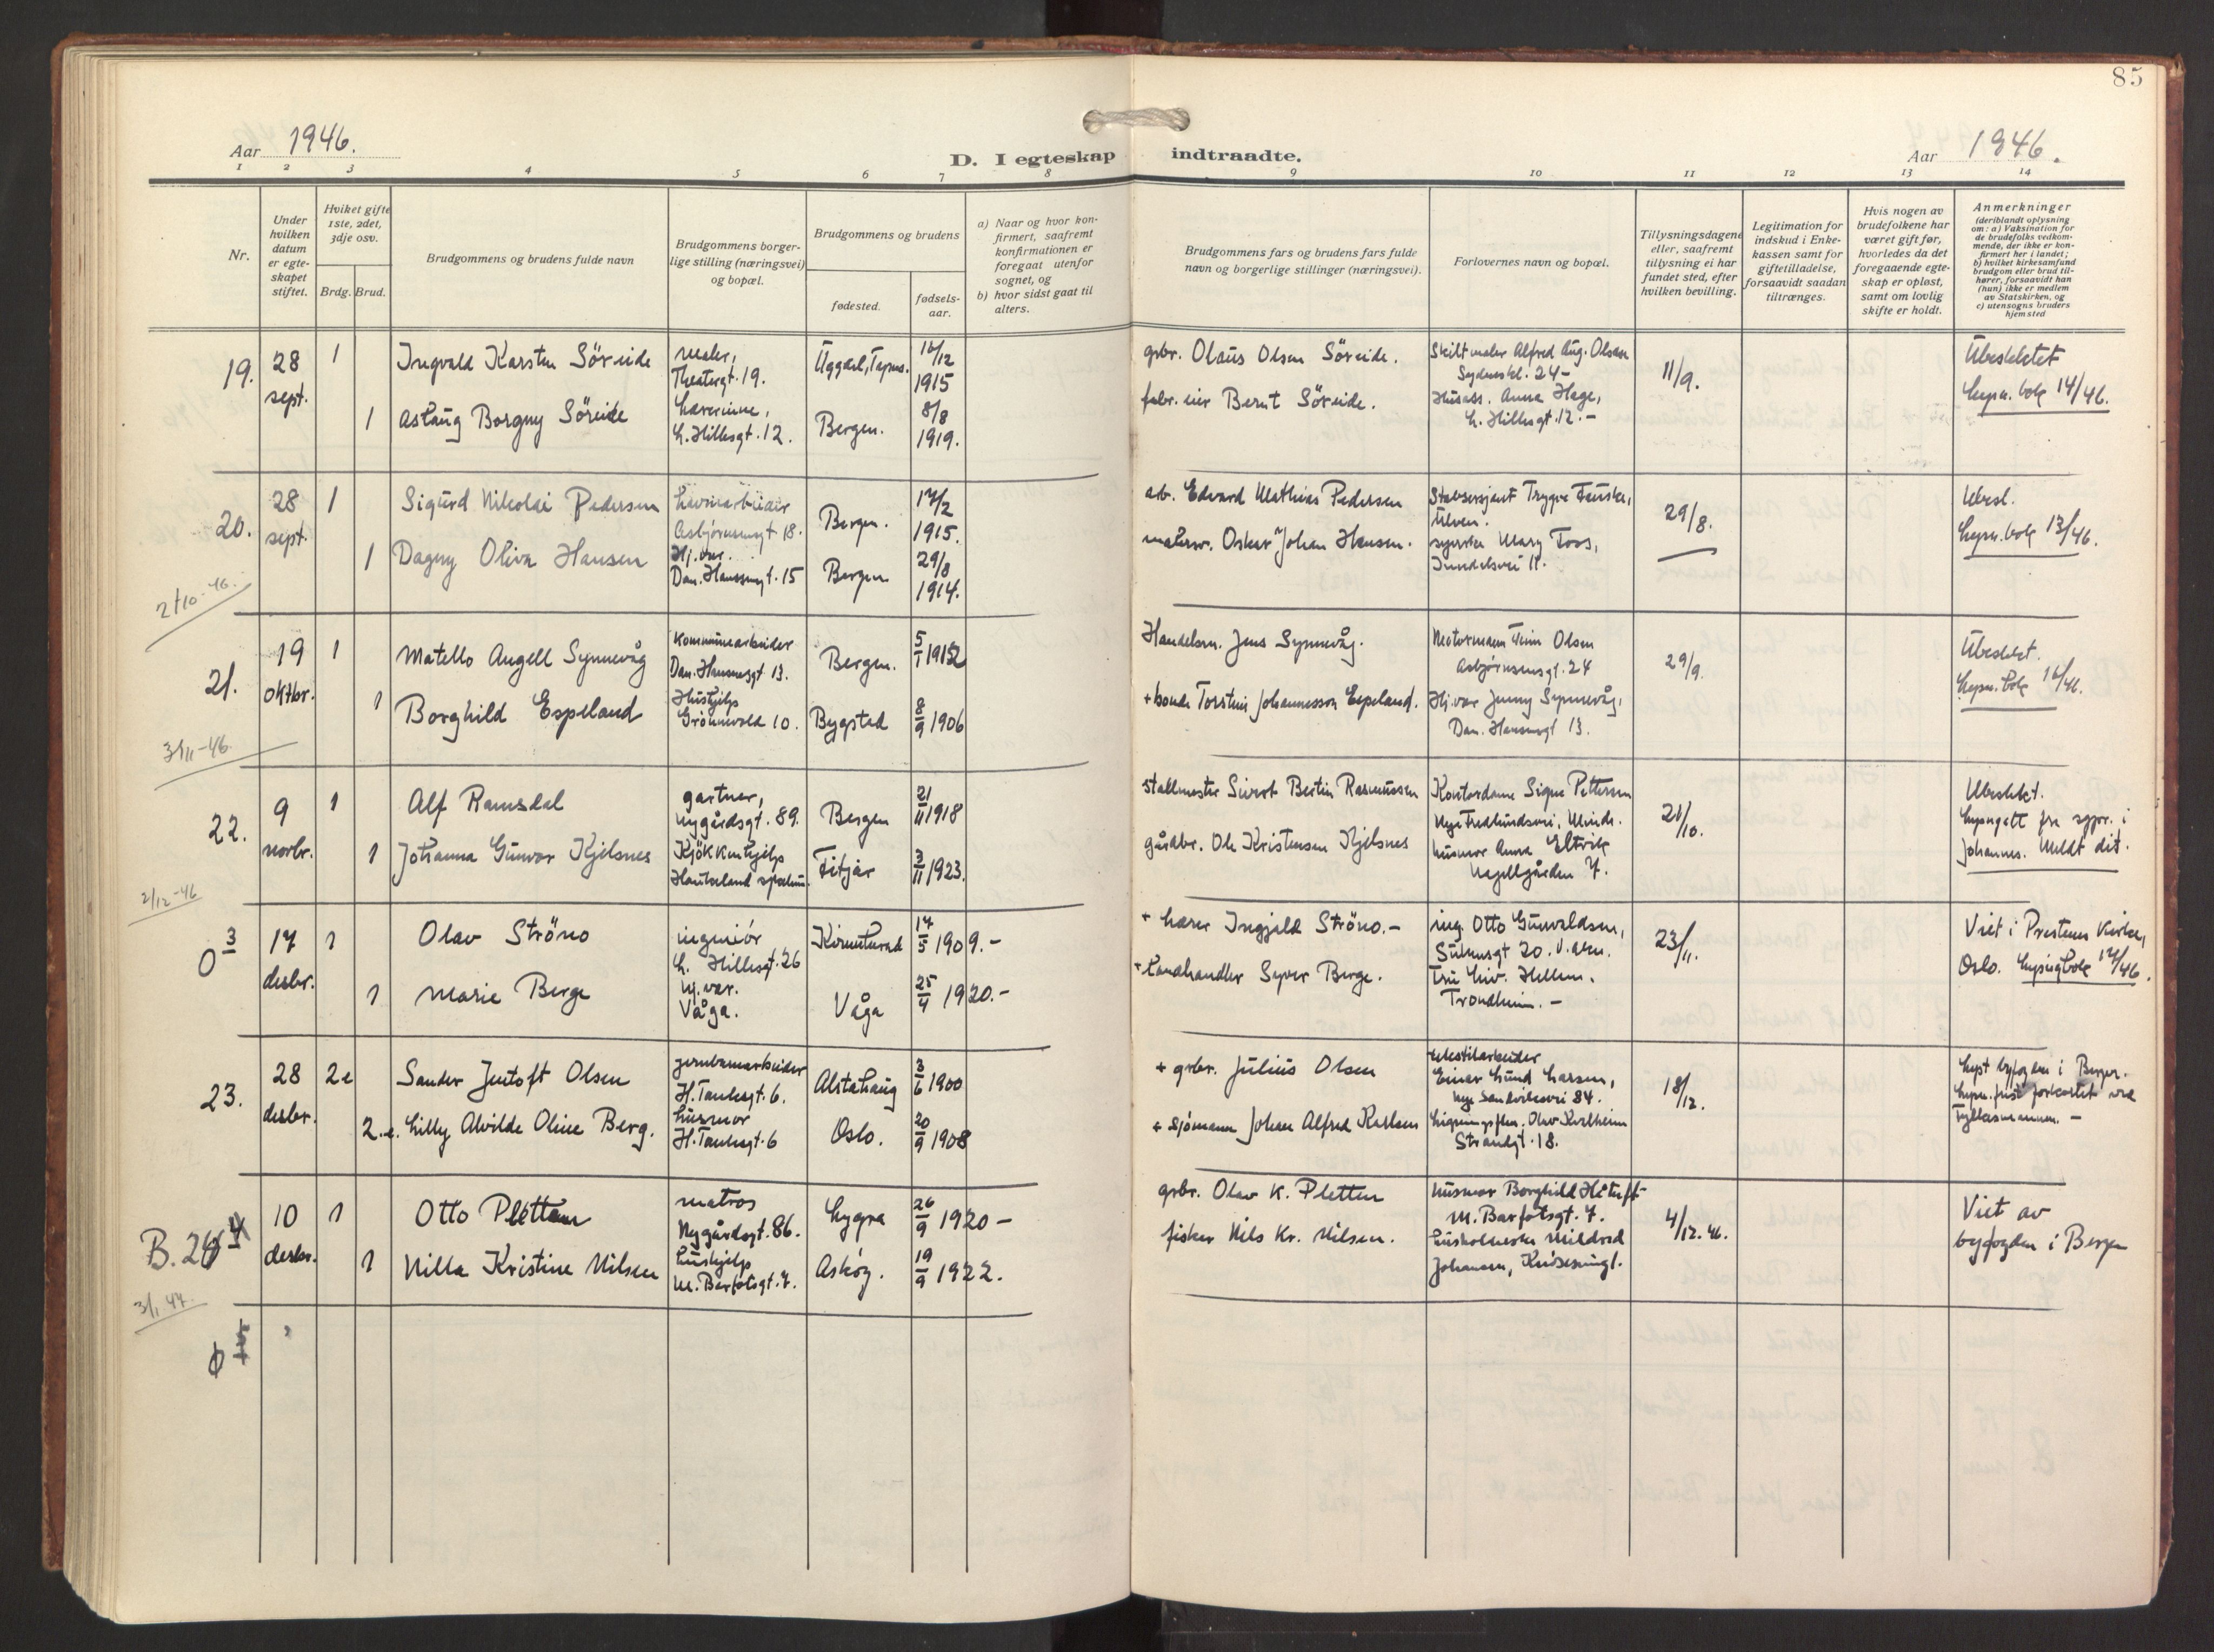 85
Aar 1946.
D. I egteskap indtraadte.
Aar 1946.
1 2 3 4 5 6 7 8 9 10 11 12 13 14
Nr.
Under hvilken datum er egteskapet stiftet.
Hviket gifte 1ste, 2det, 3dje osv.
Brdg. Brud.
Brudgommens og brudens fulde navn
Brudgommens borgerlige stilling (næringsvei) og bopæl.
Brudgommens og brudens
fødested. fødselsaar.
a) Naar og hvor konfirmert, saafremt konfirmationen er foregaat utenfor sognet, og
b) hvor sidst gaat til alters.
Brudgommens fars og brudens fars fulde navn og borgerlige stillinger (næringsvei).
Forlovernes navn og bopæl.
Tillysningsdagene eller, saafremt tillysning ei har fundet sted, efter hvilken bevilling.
Legitimation for indskud i Enkekassen samt for giftetilladelse, forsaavidt saadan tiltrænges.
Hvis nogen av brudefolkene har været gift før, hvorledes da det foregaaende egteskap er opløst, samt om lovlig skifte er holdt.
Anmerkninger
(deriblandt oplysning om: a) Vaksination for de brudefolks vedkommende, der ikke er konfirmert her i landet; b) hvilket kirkesamfund brudgom eller brud tilhører, forsaavidt han (hun) ikke er medlem av Statskirken, og c) utensogns bruders hjemsted
19. 28 sept. 1 Ingvald Karsten Söreide maler, Theatergt. 19. 16/12 1915
gbr. Olaus Olsen Söreide. Skiltmaler Alfred Aug. Olsen 24- 11/9. Ubeslektet
1 Aslaug Borgny Söreide lærerinne, L. Hillesgt. 12. Bergen. 8/8 1919.
fabr. eier Bernt Söreide. Husass. Anna Hage, L. Hillesgt. 12.- Lysn. bok 14/46.
20. 28 sept. 1 Sigurd Nikolai Pedersen havnearbeider Asbjörnsensgt 18. Bergen. 17/2 1915.
arb. Edvard Mathias Pedersen Stabsersjant Trygve Ulven. 29/8. Ubesl.
1 Dagny Oliva Hansen Hj. vær. Dan. Hansensgt. 15 Bergen 29/8 1914.
malersv. Oskar Johan Hansen. syerske Mary Foss, Lysn. bok 13/46.
2/10-46.
21. 19 oktbr. 1 Matello Angell Synnevåg Kommunearbeider Dan. Hansensgt 13. Bergen. 5/1 1912
Handelsm. Jens Synnevåg. Motormann Finn Olsen Asbjörnsensgt. 24 29/9. Ubeslekt.
1 Borghild Espeland Hushjelp Grönnevold 10. Bygstad 8/9 1906
+ bonde Torstein Johannesson Espeland. Hj. vær Jenny Synnevåg, Dan. Hansensgt 13. Lysn. bok 16/46.
3/11-46.
22. 9 novbr. 1 Alf Ramsdal gartner, Nygårdsgt. 89. Bergen 21/11 1918
Stallmester Sivert Bertin Rasmussen Kontordame Signe Pettersen 20/10. Ubeslekt.
1 Johanna Gunvor Kjelsnes Kjökkenhjelp Haukeland Fitjar 3/11 1923.
gårdbr. Ole Kristensen Kjelsnes husmor Anna Eltvik Nagellgården 7. Johannes. Meldt dit.
2/12-46
0 3 17 desbr. 1 Olav Ströno ingeniör L. Hillesgt. 26 17/5 1909.-
+ lærer Ingjald Ströno.- ing. Otto Gunvaldsen, 23/11. Viet i Prestenes Kirke,
1 Marie Berge hj. vær. Våga. Våga 25/4 1920.-
+ landhandler Syver Berge. Liv Hellem. Trondheim.- Oslo. Lysningbok 17/46.
23. 28 desbr. 2e Sander Jentoft Olsen jernbanearbeider H. Tanksgt. 6. Alstahaug 3/6 1900
+ gbr. Julius Olsen tekstilarbeider Einar Lund Larsen, Nye Sandviksvei 84. 18/12. Lyst byfogden i Bergen.
2.e. Lilly Alvilde Oline Berg. husmor H. Tanksgt. 6 Oslo. 20/9 1908
+ sjömann Johan Alfred Karlsen Olav Kvalheim Strandgt. 18. Lysn. frist forkortet ved fylkesmannen. -
B. 24 4 10 desbr. 1 Otto Pletten matros Nygårdsgt. 86. Lygra 26/9 1920 -
gbr. Olav K. Pletten husmor Borghild M. Barfotsgt. 7. 4/12. 46. Viet av
1 Nilla Kristine Nilsen hushjelp M. Barfotsgt. 7. Asköy. 19/9 1922.
fisker Nils Kr. Nilsen. Mildrid Johansen, byfogden i Bergen
3/1 47.